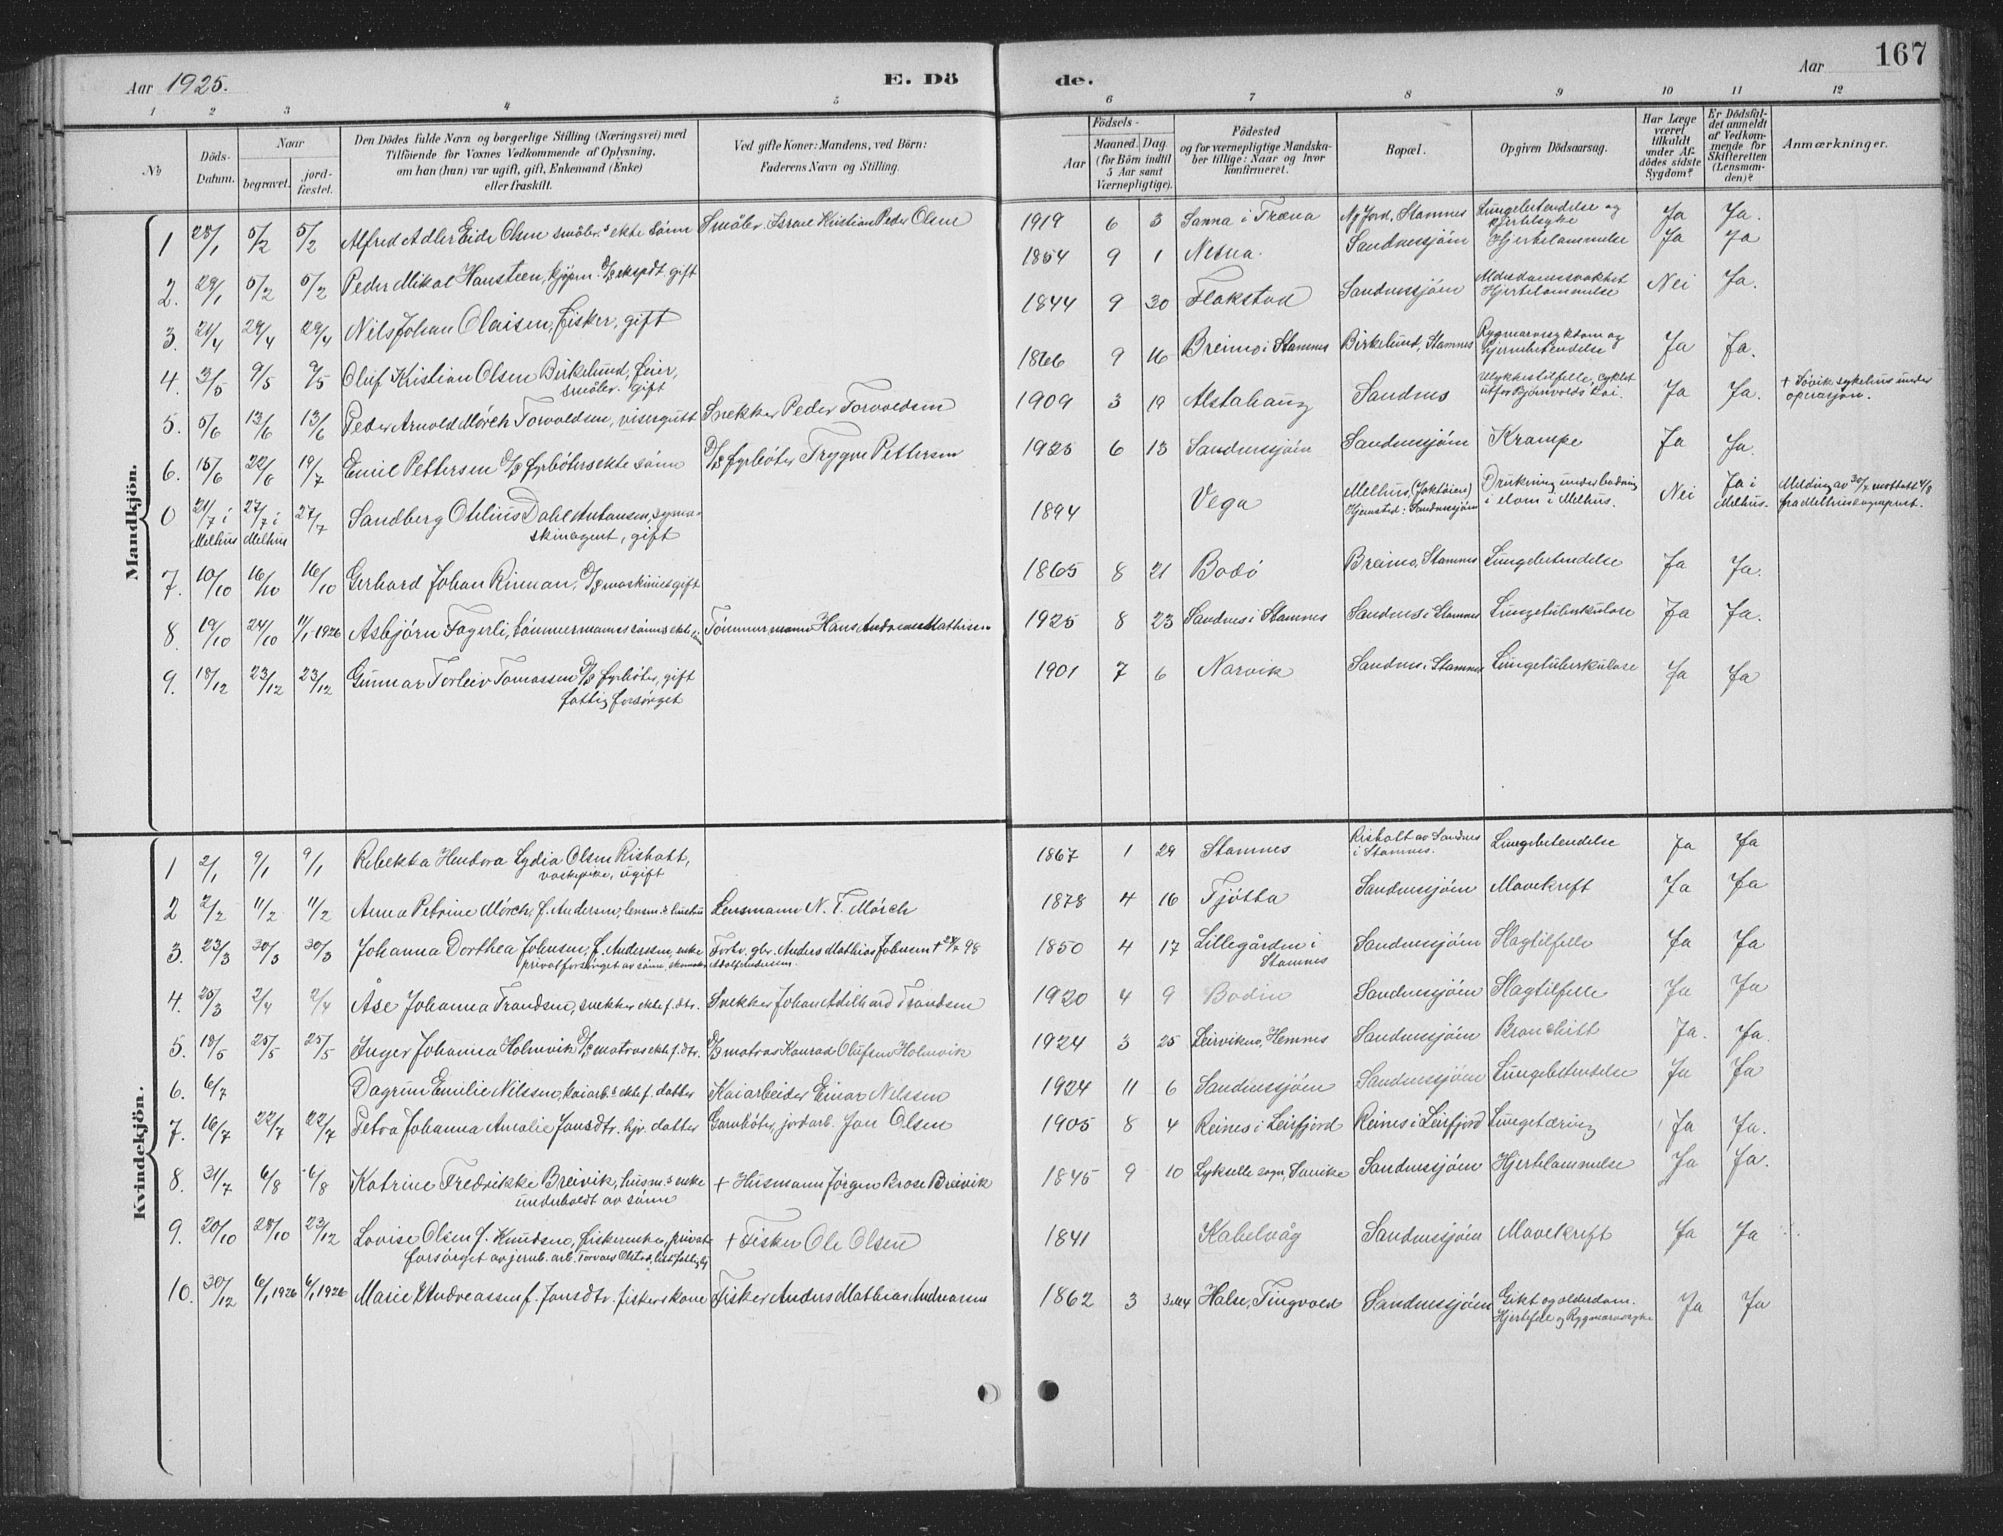 Aar 1925.
E. Dö
de.
Aar
167
1 2 3 4 5 6 7 8 9 10 11 12
№
Döds-Datum.
Naar
begravet.
jordfæstet.
Den Dödes fulde Navn og borgerlige Stilling (Næringsvei) med
Tilföiende for Voxnes Vedkommende af Oplysning,
om han (hun) var ugift, gift, Enkemand (Enke)
eller fraskilt.
Ved gifte Koner: Mandens, ved Börn:
Faderens Navn og Stilling.
Födsels-
Aar
Maaned. Dag
(for Börn indtil
5 Aar samt
Værnepligtige).
Födested
og for værnepligtige Mandskaber tillige: Naar og hvor
konfirmeret.
Bopæl.
Opgiven Dödsaarsag.
Har Læge været tilkaldt under Afdödes sidste Sygdom?
Er Dödsfaldet anmeldt af Vedkommende for Skifteretten (Lensmanden)?
Anmærkninger.
Mandkjön.
1 28/1 5/2 5/2 Alfred Adler Eide Olsen småbr.s ekte sönn Småbr. Israel Kristian Peder Olsen 1919 6 3 Sanna i Træna Nyjord, Stamnes Lungebetendelse og kjertelsyke Ja Ja.
2. 29/1 5/2 5/2 Peder Mikal Hansteen, kjøpm. D/S ekspdt gift 1854 9 1 Nesna. Sandnessjöen Hjertelammelse Ja Ja
3. 21/4 29/4 29/4 Nils Johan Olaisen, Fisker, gift 1844 9 30 Flakstad Sandnessjöen Alderdomssvakhet Hjertelammelse Nei Ja.
4. 3/5 9/5 9/5 Oluf Kristian Olsen Birkelund, Feier, småbr. gift 1866 9 16 Breimo i Stamnes Birkelund, Stamnes Rygmarvssykdom og Hjernebetendelse Ja Ja.
5. 5/6 13/6 13/6 Peder Arnold Mörch Torvoldsen, visergutt Snekker Peder Torvoldsen 1909 3 19 Alstahaug Sandnes Ulykkestilfelle, cyklet utfor Björnvolds kai. Ja Ja. + Sövik sykehus under operasjon.
6. 15/6 22/6 19/7 Emil Pettersen D/S fyrböters ekte sönn D/S fyrböter Trygve Pettersen 1925 6 13 Sandnessjöen Sandnessjöen Krampe Ja Ja.
0 21/7 i Melhus 27/7 i Melhus 27/7 Sandberg Otilius Dahl Antonsen, symaskinagent, gift 1894 Vega Melhus, (Joktöien) Hjemsted: Sandnessjöen Drukning under badning i elven i Melhus. Nei Ja i Melhus. Melding av 30/7 mottatt 4/8 fra Melhus sogneprest.
7. 10/10 16/10 16/10 Gerhard Johan Rinnan, D/S maskinist gift 1865 8 21 Bodö Breimo, Stamnes Lungebetendelse Ja Ja.
8. 19/10 24/10 1/1 1926 Asbjörn Fagerli, tömmermannss ekte sönn Tömmermann Hans Andreas Mathisen 1925 8 23 Sandnes i Stamnes Sandnes i Stamnes Lungetuberkulose Ja Ja.
9. 18/12 23/12 23/12 Gunnar Torleiv Tomassen D/S fyrböter, gift fattigforsörget 1901 7 6 Narvik Sandnes i Stamnes Lungetuberkulose Ja Ja
Kvindekjön.
1 2/1 9/1 9/1 Rebekka Hendora Lydia Olsen Rishatt, vaskepike, ugift 1867 1 29 Stamnes Rishatt av Sandnes i Stamnes. Lungebetendelse Ja Ja
2 2/2 11/2 11/2 Anna Petrine Mörch, f. Andersen, lensm.s hustru Lensmann N. T. Mörch 1878 4 16 Tjötta Sandnessjöen Mavekreft Ja Ja
3. 23/3 30/3 30/3 Johanna Dorthea Johnsen, f. Anderssen, enke privat forsörget av sönn, skomaker Adolf Andersen. Forhv. gbr. Anders Mathias Johnsen 98 1850 4 17 Lillegården i Stamnes Sandnessjöen Slagtilfelle Ja Ja
4. 25/3 2/4 2/4 Åse Johanna Trandsen, snekker ekte f. dtr. Snekker Johan Adilhard Trandsen 1920 4 9 Bodin Sandnessjöen Slagtilfelle Ja Ja
5. 18/5 25/5 25/5 Inger Johanna Holmvik D/S matros ekte f. dtr. D/S matros Konrad Olufsen Holmvik 1924 3 25 Leirvikmo, Hemnes Sandnessjöen Bronchitt Ja. Ja.
6. 6/7 Dagrun Emilie Nilssen, kaiarb.s ekte f. datter Kaiarbeider Einar Nilssen 1924 11 6 Sandnessjöen Sandnessjöen Lungebetendelse Ja Ja
7. 16/7 22/7 22/7 Petra Johanna Amalie Jansdtr. hjv. datter Garnböter, jordarb. Jan Olsen 1905 8 4 Reines i Leirfjord Reines i Leirfjord Lungetæring Ja Ja.
8. 31/7 6/8 6/8 Katrine Fredrikke Breivik, husm.s enke underholdt av sönn + Husmann Jörgen Brose Breivik 1845 9 10 Lykselle sogn, Sandnessjöen Hjertelammelse Ja Ja.
9. 20/10 28/10 23/12 Lovise Olsen f. Knudsen, fiskerenke, privat forsörget av jernb. arb. + Fisker Ole Olsen 1841 Kabelvåg Sandnessjöen Mavekreft Ja Ja
10. 30/12 6/1 1926 6/1 1926 Marie Andreassen f. Jansdtr. fiskers kone Fisker Anders Mathias Andreassen 1862 3 Halse, Tingvold Sandnessjöen Gikt og alderdom. Hjertefeil og Rygmarvssyke Ja Ja